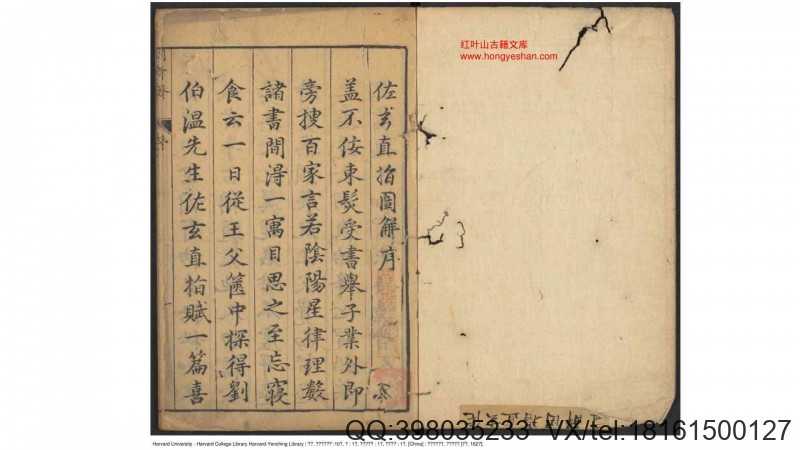 紅叶山古籍文库
www.hongyeshan.com
佐玄直指圖解序
蓋不佞束髮受書舉子業外即
旁搜百家言若陰陽星律理數
諸書間得一寓目思之至忘寢
食云一日從王父篋中探得劉
伯溫先生佐玄直指賦一篇喜
QQ:398035233 VX/tel:18161500127
Harvard University - Harvard College Library Harvard-Yenching Library